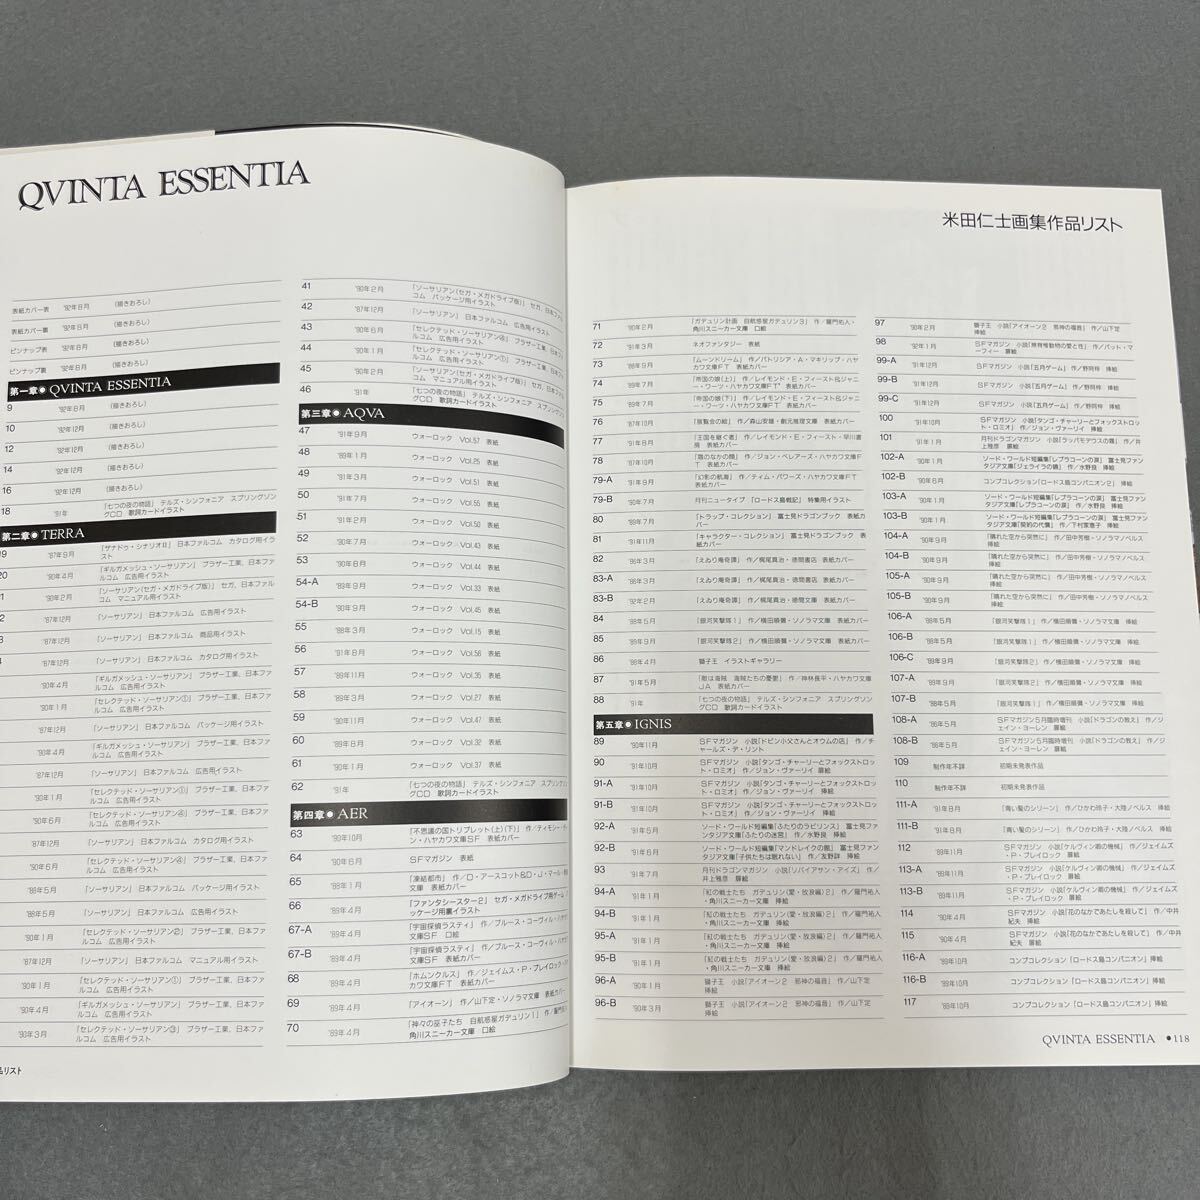 QVINTA ESSENTIA
表紙カバー表 '92年8月 (描きおろし)
表紙カバー裏 '92年8月 (描きおろし)
ピンナップ表 '92年8月 (描きおろし)
ピンナップ裏 '92年8月 (描きおろし)
第一章●QVINTA ESSENTIA
9 '92年8月 (描きおろし)
10 '92年12月 (描きおろし)
12 '92年12月 (描きおろし)
14 '92年12月 (描きおろし)
16 '92年12月 (描きおろし)
18 '91年 「七つの夜の物語」 テルズ・シンフォニア スプリングソン
グCD 歌詞カードイラスト
第二章●TERRA
19 '87年9月 「ザナドゥ・シナリオII」 日本ファルコム カタログ用イラ
スト
20 '90年4月 「ギルガメッシュ・ソーサリアン」 ブラザー工業、日本ファ
ルコム 広告用イラスト
'90年2月 「ソーサリアン(セガ・メガドライブ版)」 セガ、日本ファル
コム マニュアル用イラスト
'87年12月 「ソーサリアン」 日本ファルコム 広告用イラスト
'87年12月 「ソーサリアン」 日本ファルコム 商品用イラスト
'87年12月 「ソーサリアン」 日本ファルコム カタログ用イラスト
'90年4月 「ギルガメッシュ・ソーサリアン」 ブラザー工業、日本ファ
ルコム 広告用イラスト
'90年1月 「セレクテッド・ソーサリアン①」 ブラザー工業、日本ファ
ルコム 広告用イラスト
'87年12月 「ソーサリアン」 日本ファルコム パッケージ用イラスト
'90年4月 「ギルガメッシュ・ソーサリアン」 ブラザー工業、日本ファ
ルコム 広告用イラスト
'87年12月 「ソーサリアン」 日本ファルコム 広告用イラスト
'90年1月 「セレクテッド・ソーサリアン①」 ブラザー工業、日本ファ
ルコム 広告用イラスト
'90年6月 「セレクテッド・ソーサリアン④」 ブラザー工業、日本ファ
ルコム 広告用イラスト
'87年12月 「ソーサリアン」 日本ファルコム カタログ用イラスト
'90年6月 「セレクテッド・ソーサリアン④」 ブラザー工業、日本ファ
ルコム 広告用イラスト
'88年5月 「ソーサリアン」 日本ファルコム パッケージ用イラスト
'88年5月 「ソーサリアン」 日本ファルコム 広告用イラスト
'90年1月 「セレクテッド・ソーサリアン②」 ブラザー工業、日本ファ
ルコム 広告用イラスト
'87年12月 「ソーサリアン」 日本ファルコム マニュアル用イラスト
'90年1月 「セレクテッド・ソーサリアン①」 ブラザー工業、日本ファ
ルコム 広告用イラスト
'90年4月 「ギルガメッシュ・ソーサリアン」 ブラザー工業、日本ファ
ルコム 広告用イラスト
'90年3月 「セレクテッド・ソーサリアン③」 ブラザー工業、日本ファ
ルコム 広告用イラスト
品リスト
41 '90年2月 「ソーサリアン(セガ・メガドライブ版)」 セガ、日本ファル
コム パッケージ用イラスト
42 '87年12月 「ソーサリアン」 日本ファルコム 広告用イラスト
43 '90年6月 「セレクテッド・ソーサリアン④」 ブラザー工業、日本フ
ルコム 広告用イラスト
44 '90年1月 「セレクテッド・ソーサリアン①」 ブラザー工業、日本フ
ルコム 広告用イラスト
45 '90年2月 「ソーサリアン(セガ・メガドライブ版)」 セガ、日本ファ
コム マニュアル用イラスト
46 '91年 「七つの夜の物語」 テルズ・シンフォニア スプリングソン
グCD 歌詞カードイラスト
第三章●AQVA
47 '91年9月 ウォーロック Vol.57 表紙
48 '89年1月 ウォーロック Vol.25 表紙
49 '91年3月 ウォーロック Vol.51 表紙
50 '91年7月 ウォーロック Vol.55 表紙
51 '91年2月 ウォーロック Vol.50 表紙
52 '90年7月 ウォーロック Vol.43 表紙
53 '90年8月 ウォーロック Vol.44 表紙
54-A '89年9月 ウォーロック Vol.33 表紙
54-B '90年9月 ウォーロック Vol.45 表紙
55 '88年3月 ウォーロック Vol.15 表紙
56 '91年8月 ウォーロック Vol.56 表紙
57 '89年11月 ウォーロック Vol.35 表紙
58 '89年3月 ウォーロック Vol.27 表紙
59 '90年11月 ウォーロック Vol.47 表紙
60 '89年8月 ウォーロック Vol.32 表紙
61 '90年1月 ウォーロック Vol.37 表紙
62 '91年 「七つの夜の物語」 テルズ・シンフォニア スプリング
グCD 歌詞カードイラスト
第四章●AER
63 '90年10月 「不思議の国トリプレット(上)(下)」 作/ティモシー・
ン・ハヤカワ文庫SF 表紙カバー
64 '90年6月 SFマガジン 表紙
65 '88年1月 「凍結都市」 作/D・アースコットB&D・J・マール・
文庫 表紙カバー
66 '89年4月 「ファンタシースター2」 セガ・メガドライブ用ゲーム
ッケージ用裏イラスト
67-A '89年4月 「宇宙探偵ラスティ」 作/ブルース・コーヴィル・ハヤカワ
文庫SF 口絵
67-B '89年4月 「宇宙探偵ラスティ」 作/ブルース・コーヴィル・ハヤ
文庫SF 表紙カバー
68 '89年4月 「ホムンクルス」 作/ジェイムズ・P・ブレイロック・ハ
カワ文庫FT 表紙カバー
69 '89年4月 「アイオーン」 作/山下定・ソノラマ文庫 表紙カバー
70 '89年4月 「神々の巫子たち 自航惑星ガデュリン1」 作/羅門
角川スニーカー文庫 口絵
米田仁士画集作品リスト
71 '90年2月 「ガデュリン計画 自航惑星ガデュリン3」 作/羅門祐人・
角川スニーカー文庫 口絵
72 '91年3月 ネオファンタジー 表紙
73 '88年9月 「ムーンドリーム」 作/パトリシア・A・マキリップ・ハヤ
カワ文庫FT 表紙カバー
74 '89年7月 「帝国の娘(上)」 作/レイモンド・E・フィースト&ジャニ
ー・ワーツ・ハヤカワ文庫FT 表紙カバー
75 '89年7月 「帝国の娘(下)」 作/レイモンド・E・フィースト&ジャニ
ー・ワーツ・ハヤカワ文庫FT 表紙カバー
76 '87年10月 「展覧会の絵」 作/森山安雄・創元推理文庫 表紙カバー
77 '91年8月 「王国を継ぐ者」 作/レイモンド・E・フィースト・早川書
房 表紙カバー
78 '87年10月 「塔のなかの姫」 作/ジョン・ベレアーズ・ハヤカワ文庫F
T 表紙カバー
79-A '91年4月 「幻影の航海」 作/ティム・パワーズ・ハヤカワ文庫FT
表紙カバー
79-B '90年7月 月刊ニュータイプ 「ロードス島戦記」 特集用イラスト
80 '89年7月 「トラップ・コレクション」 富士見ドラゴンブック 表紙カ
バー
81 '91年11月 「キャラクター・コレクション」 富士見ドラゴンブック 表
紙カバー
82 '86年3月 「えゐり庵奇譚」 作/梶尾真治・徳間書店 表紙カバー
83-A '86年3月 「えゐり庵奇譚」 作/梶尾真治・徳間書店 表紙カバー
83-B '92年2月 「えゐり庵奇譚」 作/梶尾真治・徳間文庫 表紙カバー
84 '88年5月 「銀河笑撃隊1」 作/横田順彌・ソノラマ文庫 表紙カバー
85 '89年9月 「銀河笑撃隊2」 作/横田順彌・ソノラマ文庫 表紙カバー
86 '88年4月 獅子王 イラストギャラリー
87 '91年5月 「敵は海賊 海賊たちの憂鬱」 作/神林長平・ハヤカワ文庫
JA 表紙カバー
88 '91年 「七つの夜の物語」 テルズ・シンフォニア スプリングソン
グCD 歌詞カードイラスト
第五章●IGNIS
89 '90年11月 SFマガジン 小説「ドビン小父さんとオウムの店」 作/チ
ャールズ・デ・リント
90 '91年10月 SFマガジン 小説「タンゴ・チャーリーとフォックストロッ
ト・ロミオ」 作/ジョン・ヴァーリイ 扉絵
91-A '91年10月 SFマガジン 小説「タンゴ・チャーリーとフォックストロッ
ト・ロミオ」 作/ジョン・ヴァーリイ 扉絵
91-B '91年10月 SFマガジン 小説「タンゴ・チャーリーとフォックストロッ
ト・ロミオ」 作/ジョン・ヴァーリイ 扉絵
92-A '91年6月 ソード・ワールド短編集「ふたりのラビリンス」 富士見ファ
ンタジア文庫「ふたりの迷宮」 作/水野良 挿絵
92-B '91年6月 ソード・ワールド短編集「マンドレイクの館」 富士見ファン
タジア文庫「子供たちは眠れない」 作/友野詳 挿絵
93 '91年7月 月刊ドラゴンマガジン 小説「リバイアサン・アイズ」 作/
井上雅彦 扉絵
94-A '91年1月 「紅の戦士たち ガデュリン(愛・放浪編)2」 作/羅門祐人
・角川スニーカー文庫 挿絵
94-B '91年1月 「紅の戦士たち ガデュリン(愛・放浪編)2」 作/羅門祐人
・角川スニーカー文庫 挿絵
95-A '91年1月 「紅の戦士たち ガデュリン(愛・放浪編)2」 作/羅門祐人
・角川スニーカー文庫 挿絵
95-B '91年1月 「紅の戦士たち ガデュリン(愛・放浪編)2」 作/羅門祐人
・角川スニーカー文庫 挿絵
96-A '90年1月 獅子王 小説「アイオーン2 邪神の福音」 作/山下定
挿絵
96-B '90年3月 獅子王 小説「アイオーン2 邪神の福音」 作/山下定
挿絵
97 '90年2月 獅子王 小説「アイオーン2 邪神の福音」 作/山下定
挿絵
98 '92年1月 SFマガジン 小説「無脊椎動物の愛と性」 作/パット・マ
ーフィー 扉絵
99-A '91年12月 SFマガジン 小説「五月ゲーム」 作/野阿梓 挿絵
99-B '91年12月 SFマガジン 小説「五月ゲーム」 作/野阿梓 挿絵
99-C '91年12月 SFマガジン 小説「五月ゲーム」 作/野阿梓 挿絵
100 '91年10月 SFマガジン 小説「タンゴ・チャーリーとフォックストロッ
ト・ロミオ」 作/ジョン・ヴァーリイ 挿絵
101 '91年1月 月刊ドラゴンマガジン 小説「ラッパモデウスの霧」 作/井
上雅彦 扉絵
102-A '90年1月 ソード・ワールド短編集「レプラコーンの涙」 富士見ファン
タジア文庫「ジェライラの鎧」 作/水野良 挿絵
102-B '90年6月 コンプコレクション「ロードス島コンパニオン2」 挿絵
103-A '90年1月 ソード・ワールド短編集「レプラコーンの涙」 富士見ファン
タジア文庫「レプラコーンの涙」 作/水野良 挿絵
103-B '90年1月 ソード・ワールド短編集「レプラコーンの涙」 富士見ファン
タジア文庫「契約の代償」 作/下村家恵子 挿絵
104-A '90年9月 「晴れた空から突然に」 作/田中芳樹・ソノラマノベルス
挿絵
104-B '90年9月 「晴れた空から突然に」 作/田中芳樹・ソノラマノベルス
挿絵
105-A '90年9月 「晴れた空から突然に」 作/田中芳樹・ソノラマノベルス
挿絵
105-B '90年9月 「晴れた空から突然に」 作/田中芳樹・ソノラマノベルス
挿絵
106-A '88年5月 「銀河笑撃隊1」 作/横田順彌・ソノラマ文庫 挿絵
106-B '88年5月 「銀河笑撃隊1」 作/横田順彌・ソノラマ文庫 挿絵
106-C '89年9月 「銀河笑撃隊2」 作/横田順彌・ソノラマ文庫 挿絵
107-A '89年9月 「銀河笑撃隊2」 作/横田順彌・ソノラマ文庫 挿絵
107-B '88年5月 「銀河笑撃隊1」 作/横田順彌・ソノラマ文庫 挿絵
108-A '86年5月 SFマガジン5月臨時増刊 小説「ドラゴンの教え」 作/ジ
ェイン・ヨーレン 扉絵
108-B '86年5月 SFマガジン5月臨時増刊 小説「ドラゴンの教え」 作/ジ
ェイン・ヨーレン 挿絵
109 制作年不詳 初期未発表作品
110 制作年不詳 初期未発表作品
111-A '91年8月 「青い髪のシリーン」 作/ひかわ玲子・大陸ノベルス 挿絵
111-B '91年8月 「青い髪のシリーン」 作/ひかわ玲子・大陸ノベルス 挿絵
112 '89年11月 SFマガジン 小説「ケルヴィン卿の機械」 作/ジェイムズ
・P・ブレイロック 扉絵
113-A '89年11月 SFマガジン 小説「ケルヴィン卿の機械」 作/ジェイムズ
・P・ブレイロック 挿絵
113-B '89年11月 SFマガジン 小説「ケルヴィン卿の機械」 作/ジェイムズ
・P・ブレイロック 挿絵
114 '90年4月 SFマガジン 小説「花のなかであたしを殺して」 作/中井
紀夫 扉絵
115 '90年4月 SFマガジン 小説「花のなかであたしを殺して」 作/中井
紀夫 扉絵
116-A '89年10月 コンプコレクション「ロードス島コンパニオン」 挿絵
116-B '89年10月 コンプコレクション「ロードス島コンパニオン」 挿絵
117 '89年10月 コンプコレクション「ロードス島コンパニオン」 挿絵
QVINTA ESSENTIA ●118